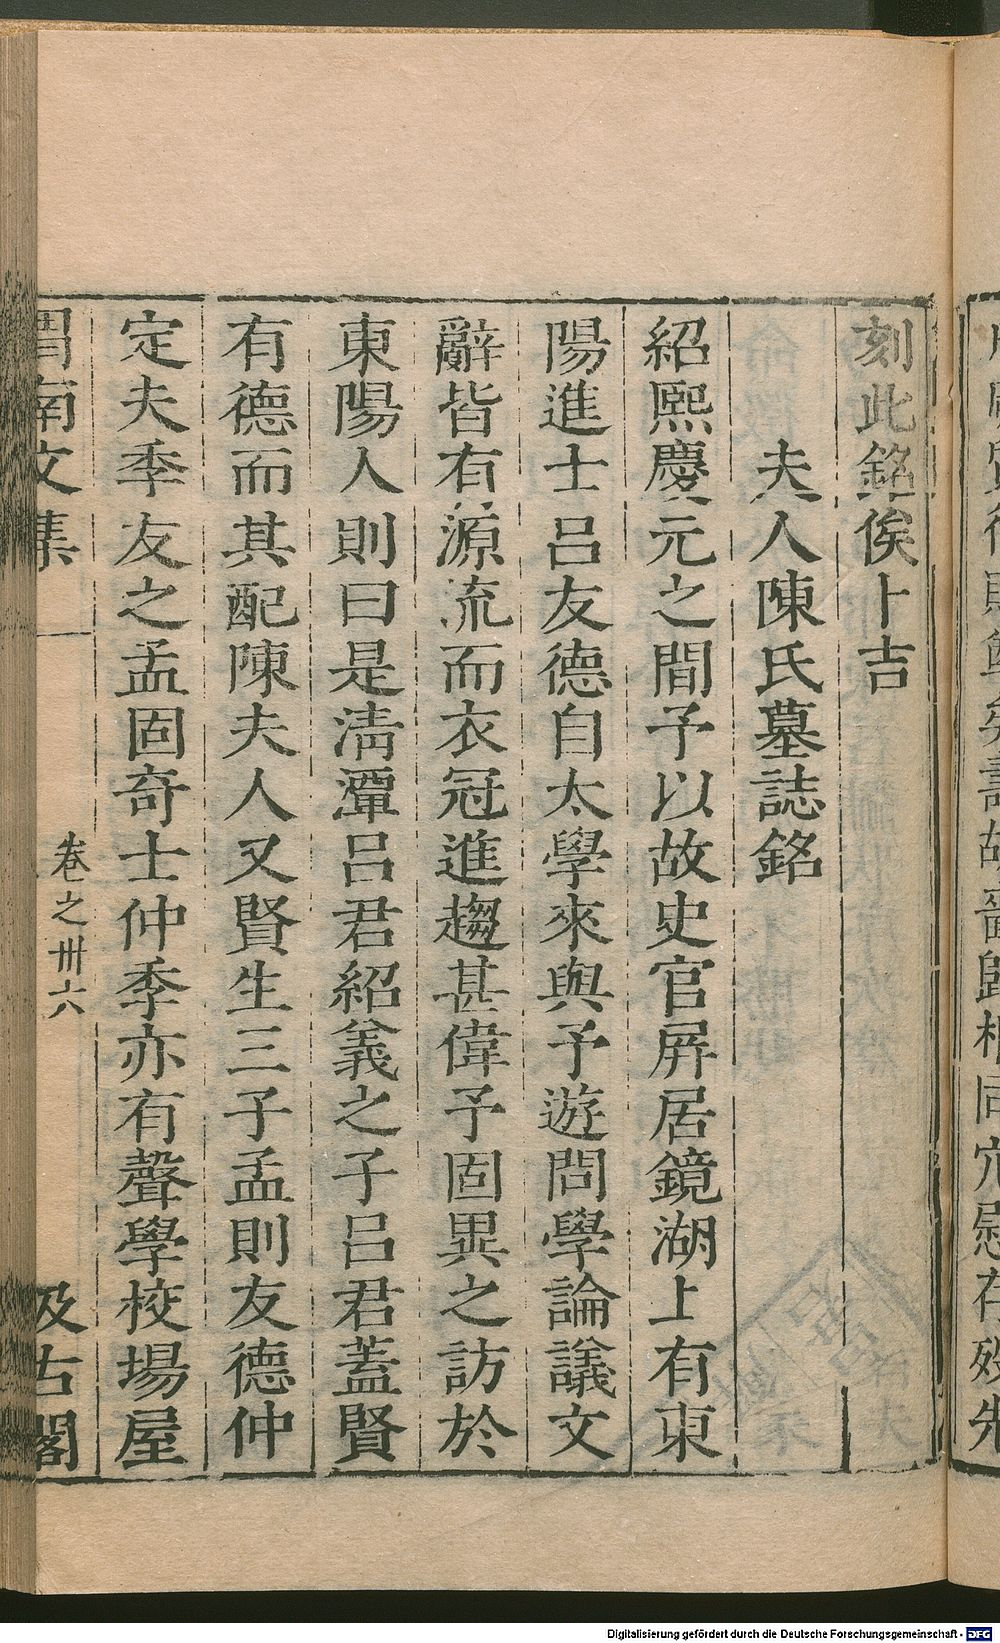 刻此銘俟卜吉
夫人陳氏墓誌銘
紹熙慶元之間予以故史官屏居鏡湖上有東
陽進士呂友德自太學來與予遊問學論議文
辭皆有源流而衣冠進趨甚偉予固異之訪於
東陽人則曰是淸潭呂君紹義之子呂君蓋賢
有德而其配陳夫人又賢生三子孟則友德仲
定夫季友之孟固奇士仲季亦有聲學校場屋
渭南文集
卷之卅六
汲古閣
同穴慰存歿先
Digitalisierung gefördert durch die Deutsche Forschungsgemeinschaft - DFG